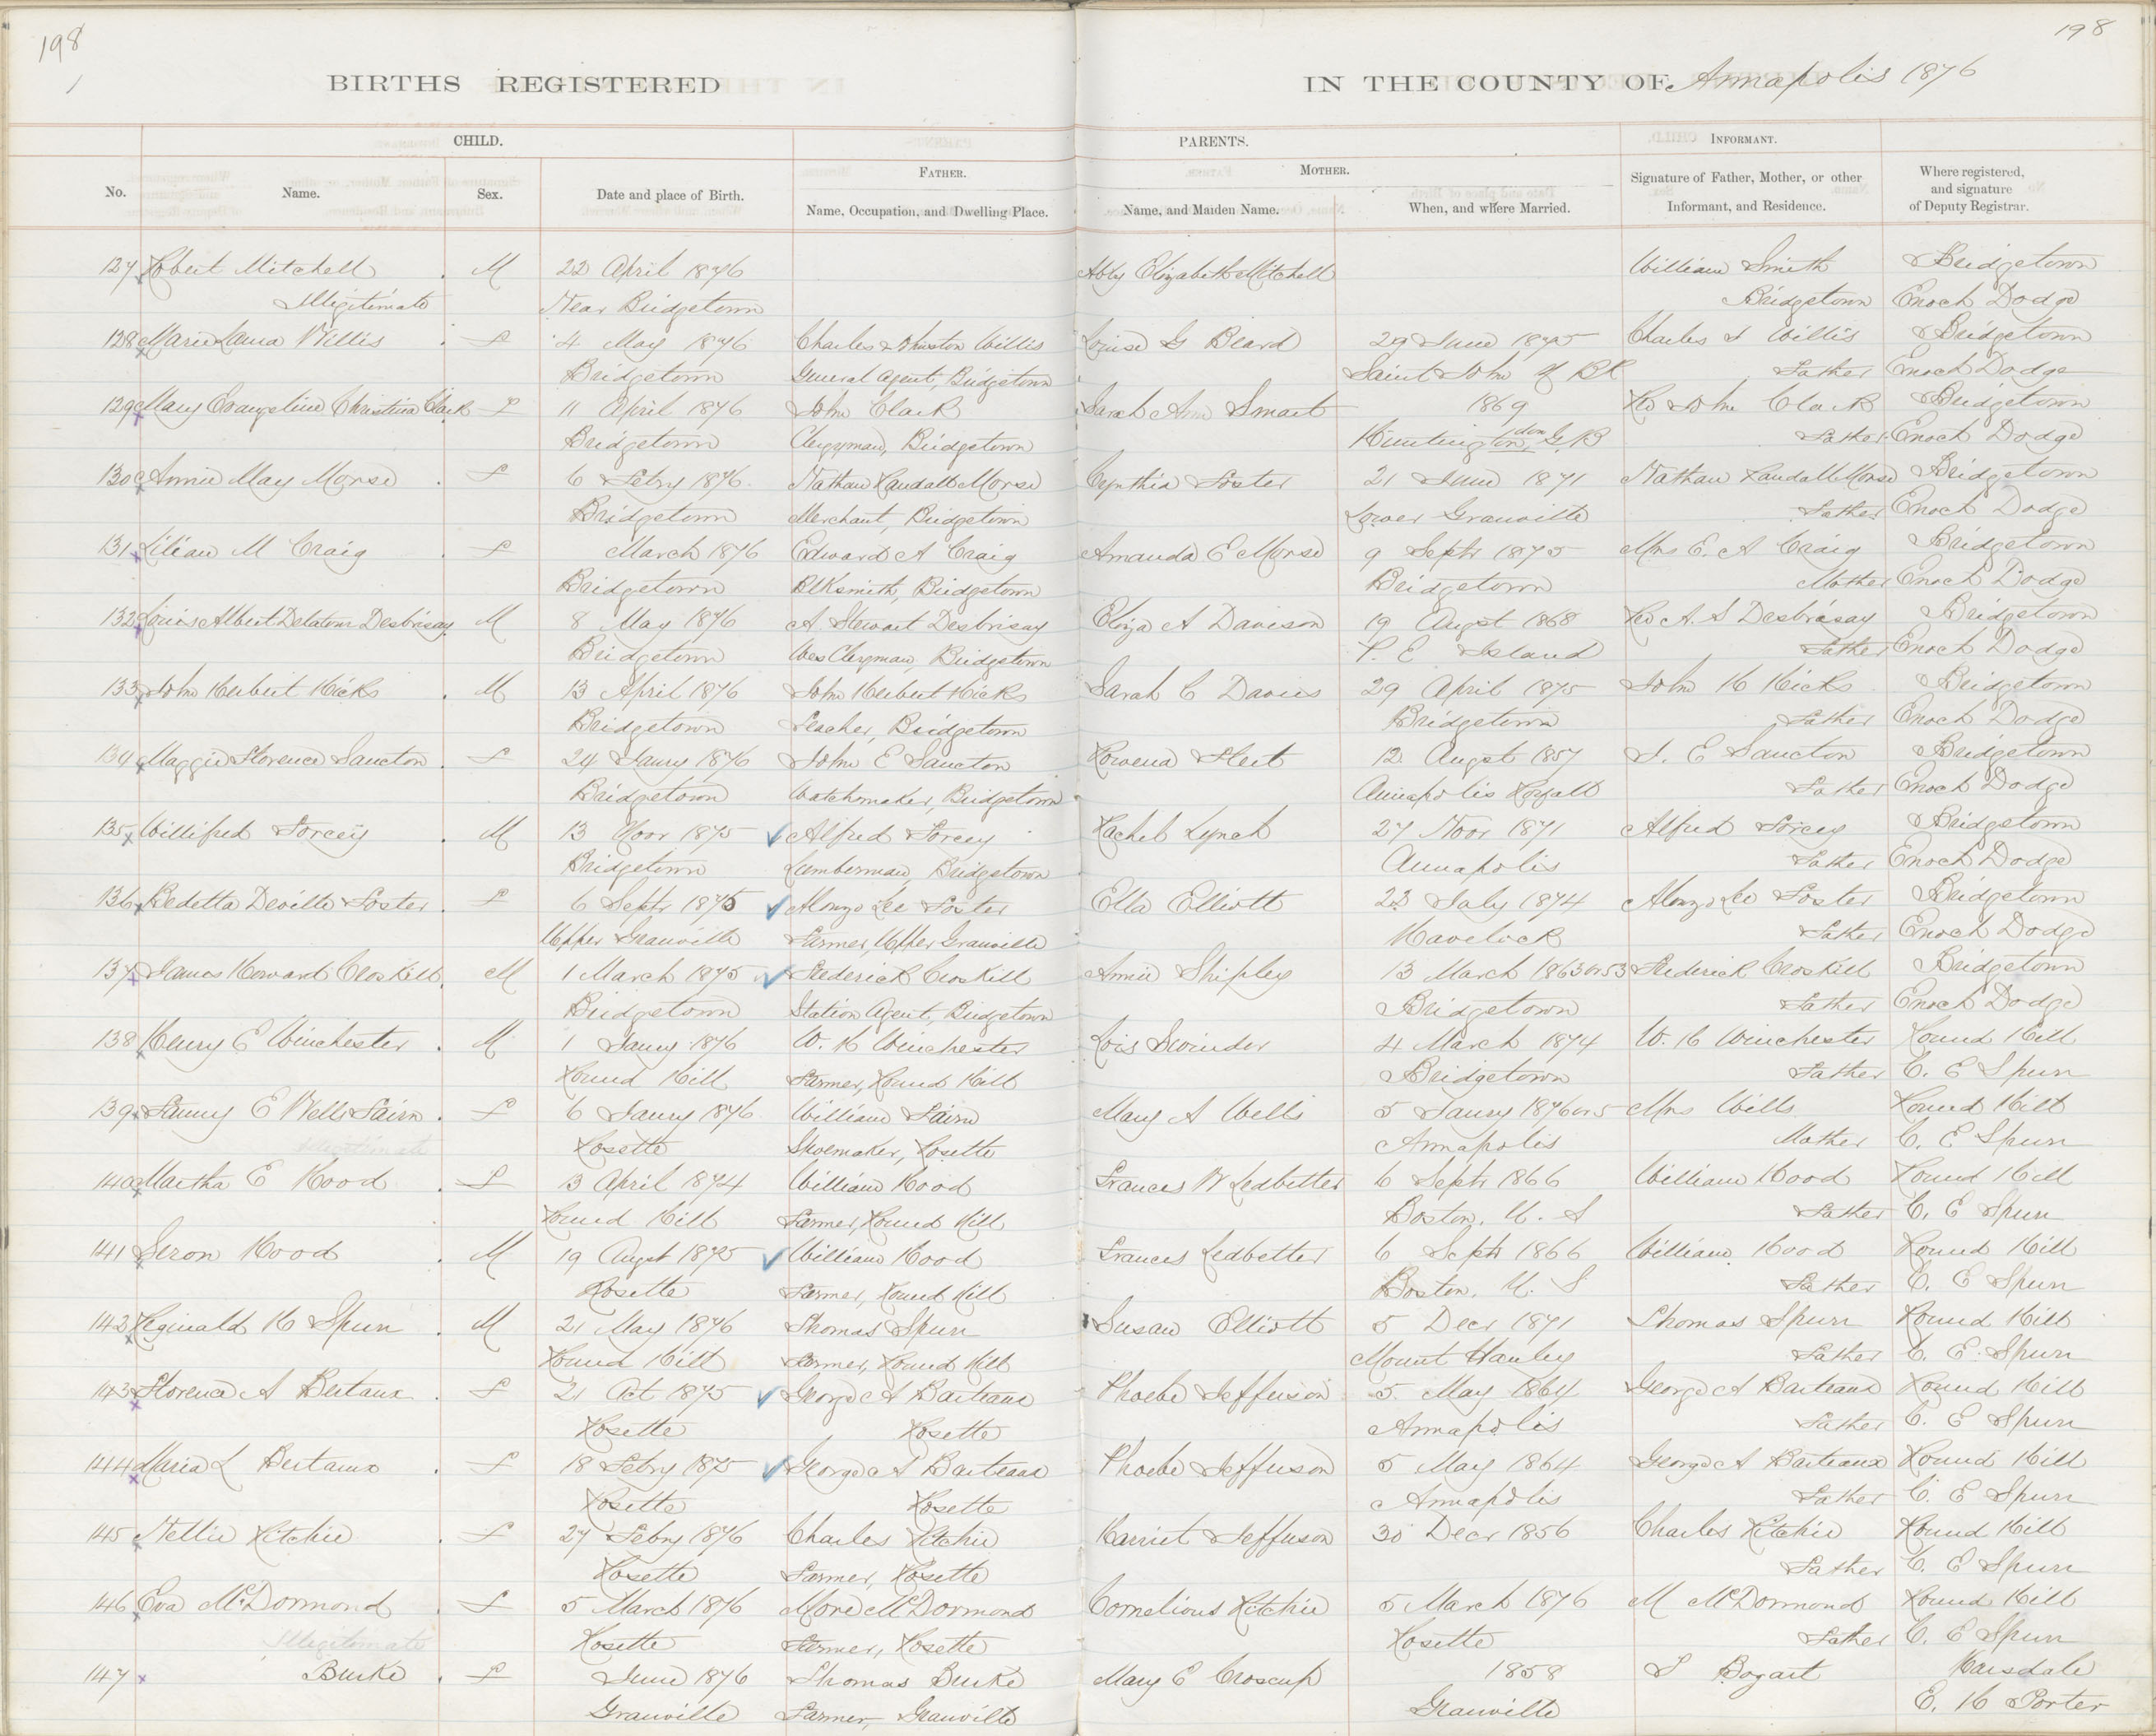 198
198
BIRTHS REGISTERED
IN THE COUNTY OF Annapolis 1876
CHILD.
PARENTS.
INFORMANT.
No.
Name.
Sex.
Date and place of Birth.
FATHER.
Name, Occupation, and Dwelling Place.
MOTHER.
Name, and Maiden Name.
When, and where Married.
Signature of Father, Mother, or other
Informant, and Residence.
Where registered,
and signature
of Deputy Registrar.
127 Robert Mitchell M 22 April 1876 Abby Elizabeth Mitchell William Smith Bridgetown
Illigitimate Near Bridgetown Bridgetown Enoch Dodge
128 Marie Laura Willis F 4 May 1876 Charles Johnston Willis Louise G Beard 29 June 1875 Charles J Willis Bridgetown
Bridgetown General Agent, Bridgetown Saint John N BK Father Enoch Dodge
129 Mary Evangeline Christina Clark F 11 April 1876 John Clark Sarah Ann Smart 1869 Rev John Clark Bridgetown
Bridgetown Clergyman, Bridgetown Huntingdon, G.B Father Enoch Dodge
130 Annie May Morse F 6 Febry 1876 Nathan Randall Morse Cynthia Foster 21 June 1871 Nathan Randall Morse Bridgetown
Bridgetown Merchant, Bridgetown Lower Granville Father Enoch Dodge
131 Lilian M Craig F March 1876 Edward A Craig Amanda E Morse 9 Septr 1875 Mrs E. A Craig Bridgetown
Bridgetown Blksmith, Bridgetown Bridgetown Mother Enoch Dodge
132 Albert Delatour Desbrisay M 8 May 1876 A. Stewart Desbrisay Eliza A Davison 19 Augst 1868 Rev A. S Desbrisay Bridgetown
Bridgetown Wes Clergman, Bridgetown P. E Island Father Enoch Dodge
133 John Herbert Hicks M 13 April 1876 John Herbert Hicks Sarah C Davies 29 April 1875 John H Hicks Bridgetown
Bridgetown Teacher, Bridgetown Bridgetown Father Enoch Dodge
134 Maggie Florence Sancton F 24 Janry 1876 John E Sancton Rowena Fleet 12 Augst 1857 J. E Sancton Bridgetown
Bridgetown Watchmaker, Bridgetown Annapolis Royall Father Enoch Dodge
135 Willifred Forcey M 13 Novr 1875 Alfred Forcey Rachel Lynch 27 Novr 1871 Alfred Forcey Bridgetown
Bridgetown Lumberman, Bridgetown Annapolis Father Enoch Dodge
136 Bedetta Deville Foster F 6 Septr 1875 Alonzo Lee Foster Ella Elliott 23 July 1874 Alonzo Lee Foster Bridgetown
Upper Granville Farmer, Upper Granville Havelock Father Enoch Dodge
137 James Howard Croskill M 1 March 1875 Frederick Croskill Annie Shipley 13 March 1863 or 53 Frederick Croskill Bridgetown
Bridgetown Station Agent, Bridgetown Bridgetown Father Enoch Dodge
138 Henry E Winchester M 1 Janry 1876 W. H Winchester Lois Swinder 4 March 1874 W. H Winchester Round Hill
Round Hill Farmer, Round Hill Bridgetown Father C. E Spurr
139 Fanny E Wells Fairn F 6 Janry 1876 William Fairn Mary A Wells 5 Janry 1876 or 5 Mrs Wills Round Hill
Illigitimate Rosette Shoemaker, Rosette Annapolis Mother C. E Spurr
140 Martha E Hood F 13 April 1874 William Hood Frances W Ledbetter 6 Septr 1866 William Hood Round Hill
Round Hill Farmer, Round Hill Boston, U. S Father C. E Spurr
141 Seron Hood M 19 Augst 1875 William Hood Frances Ledbetter 6 Septr 1866 William Hood Round Hill
Rosette Farmer, Round Hill Boston, U. S Father C. E Spurr
142 Reginald H Spurr M 21 May 1876 Thomas Spurr Susan Elliott 5 Decr 1871 Thomas Spurr Round Hill
Round Hill Farmer, Round Hill Mount Hanley Father C. E. Spurr
143 Florence A Bertaux F 21 Oct 1875 George A Barteaux Phoebe Jefferson 5 May 1864 George A Barteaux Round Hill
Rosette Rosette Annapolis Father C. E Spurr
144 Maria L Bertaux F 18 Febry 1875 George A Barteaux Phoebe Jefferson 5 May 1864 George A Barteaux Round Hill
Rosette Rosette Annapolis Father C. E Spurr
145 Nellie Ritchie F 27 Febry 1876 Charles Ritchie Harriet Jefferson 30 Decr 1856 Charles Ritchie Round Hill
Rosette Farmer, Rosette Father C. E Spurr
146 Eva McDormond F 5 March 1876 More McDormond Cornelious Ritchie 5 March 1876 M McDormond Round Hill
Illigitimate Rosette Farmer, Rosette Rosette Father C. E Spurr
147 Burke F June 1876 Thomas Burke Mary E Croscup 1858 S Bogart Karsdale
Granville Farmer, Granville Granville E. H Porter